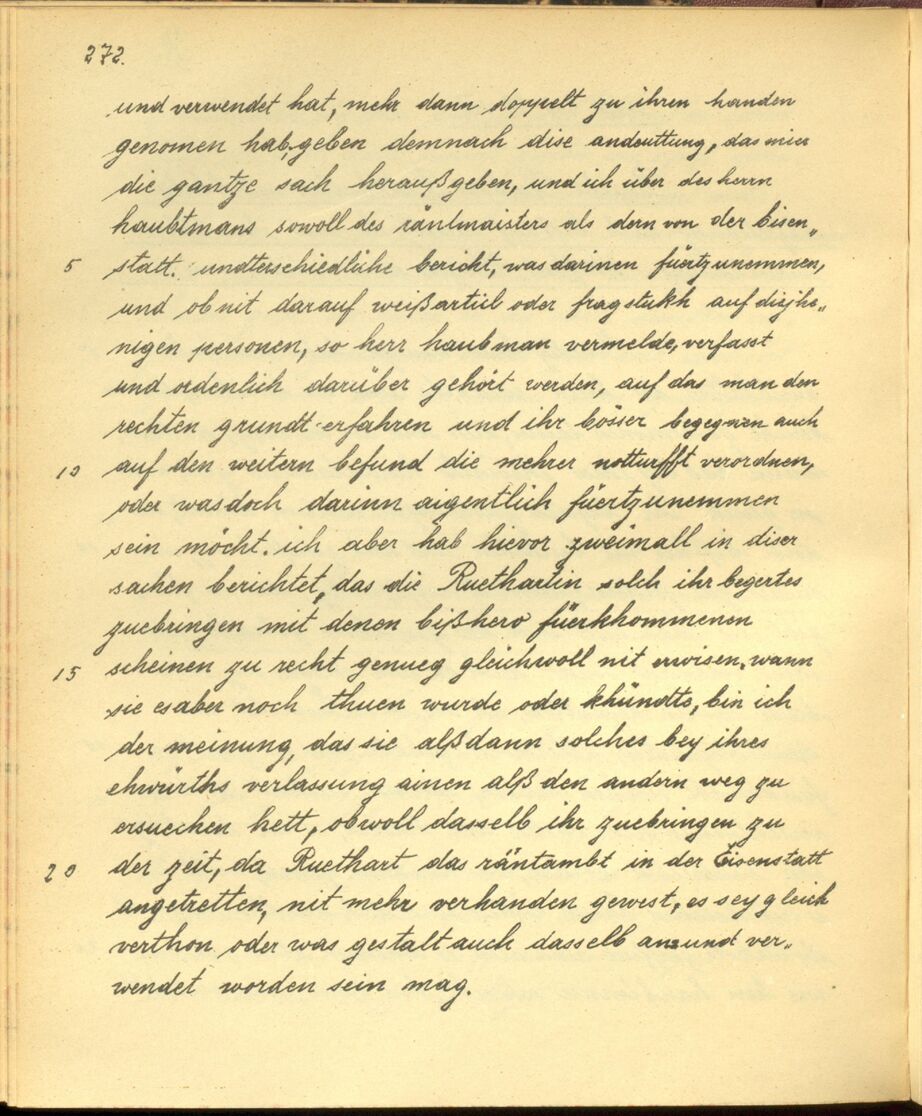 272.
und verwendet hat, mehr dann doppelt zu ihren handen
genomen hab, geben demnach dise andeuttung, das mier
die gantze sach heraußgeben, und ich über des herrn
haubtmans sowoll des räntmaisters als dern von der Eisen„
5 statt. undterschiedliche bericht, was darinen füertzunemmen,
und ob nit darauf weißarticl oder fragstukh auf diejhe„
nigen personen, so herr haubman vermelde, verfasst
und ordenlich darüber gehört werden, auf das man den
rechten grundt erfahren und ihr bösser begegnen auch
10 auf den weitern befund die mehrer notturfft verordnen,
oder was doch darinn aigentlich füertzunemmen
sein möcht. ich aber hab hievor zweimall in diser
sachen berichtet, das die Ruethartin solch ihr begertes
zuebringen mit denen bißhero füerkhommenen
15 scheinen zu recht genueg gleichwoll nit erwisen. wann
sie es aber noch thuen wurde oder khündte, bin ich
der meinung, das sie alßdann solches bey ihres
ehwürths verlassung ainen alß den andern weg zu
ersuechen hett, obwoll dasselb ihr zuebringen zu
20 der zeit, da Ruethart das räntambt in der Eisenstatt
angetretten, nit mehr verhanden gewest, es sey gleich
verthon oder was gestalt auch dasselb an= und ver„
wendet worden sein mag.